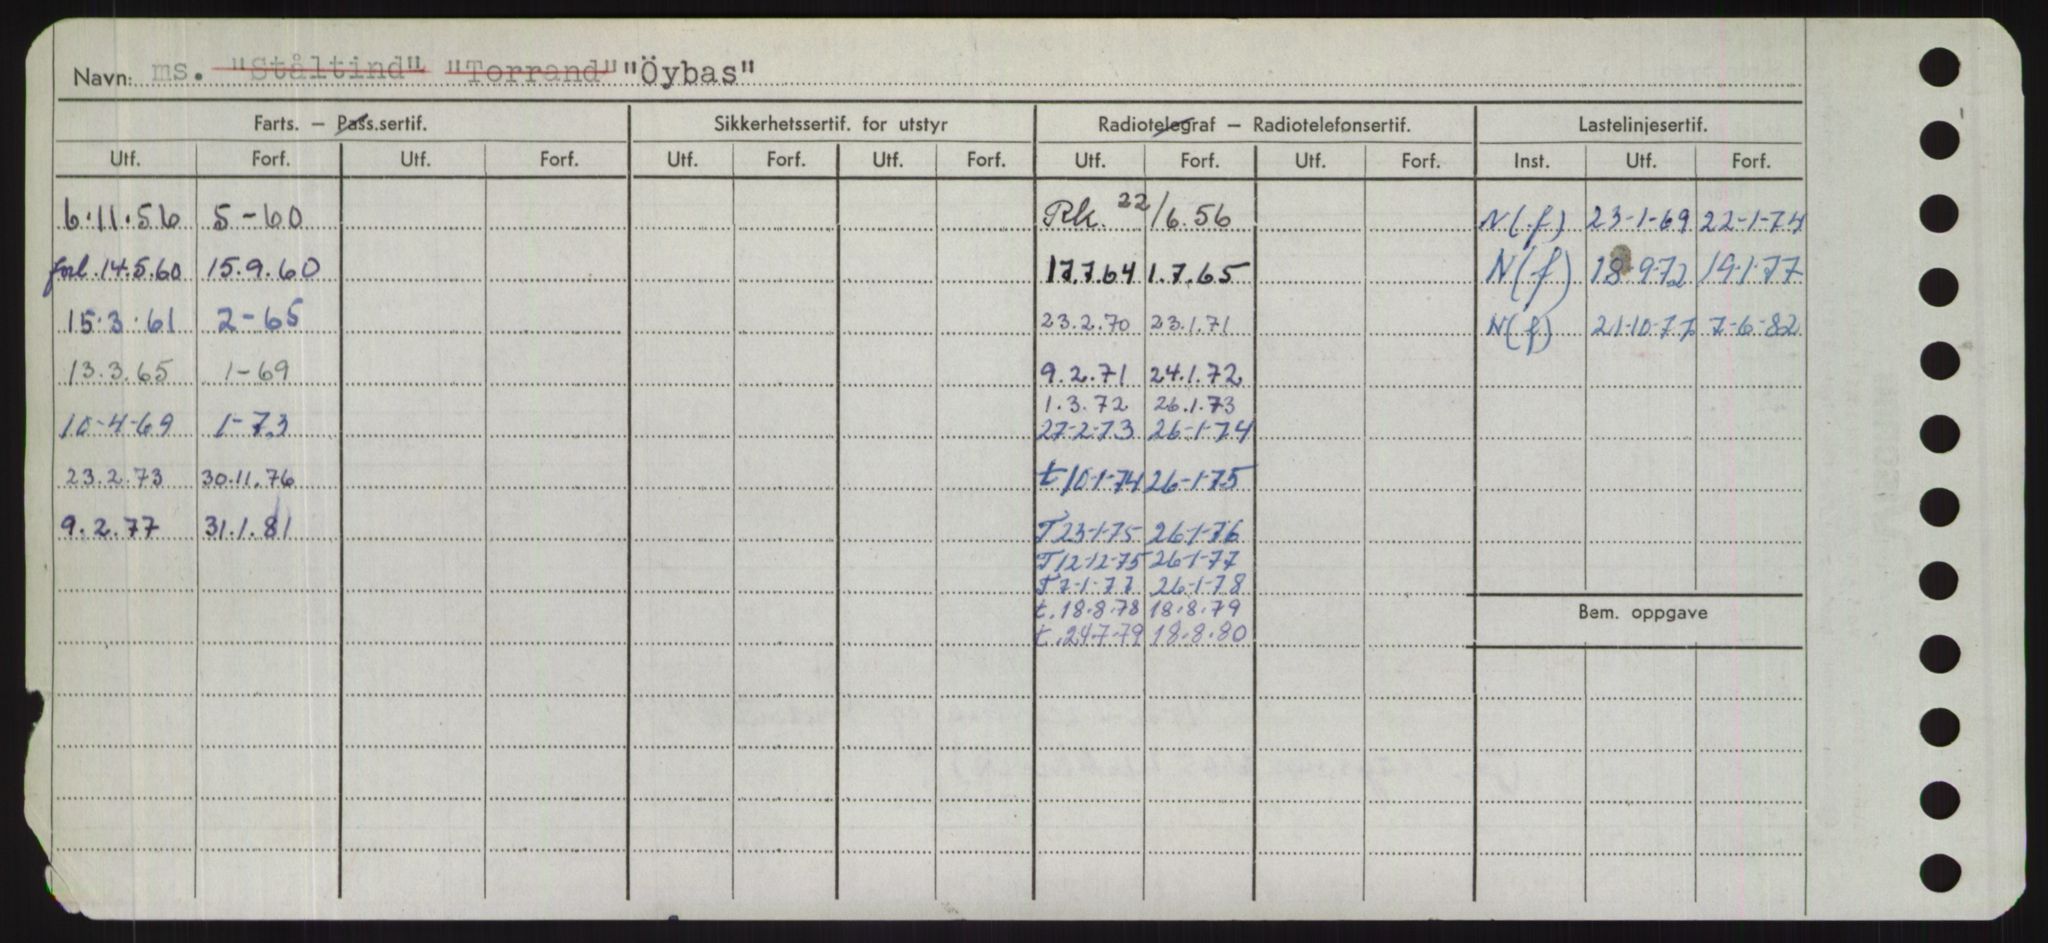 Navn: ms. "Ståltind" "Torrand" "Öybas"
Farts. — Pass.sertif. Sikkerhetssertif. for utstyr Radiotelegraf — Radiotelefonsertif. Lastelinjesertif.
Utf. Forf. Utf. Forf. Utf. Forf. Utf. Forf. Utf. Forf. Utf. Forf. Inst. Utf. Forf.
6.11.56 5-60 Rk. 22/6.56 N(f) 23-1-69 22-1-74
forl. 14.5.60 15.9.60 17.7.64 1.7.65 N(f) 18-9-72 19-1-77
15.3.61 2-65 23.2.70 23.1.71 N(f) 21-10-77 7-6-82
13.3.65 1-69 9.2.71 24.1.72
1.3.72 26.1.73
10-4-69 1-73 27-2-73 26-1-74
23.2.73 30.11.76 t 10-1-74 26-1-75
9.2.77 31.1.81 T 23-1-75 26-1-76
T 12-12-75 26-1-77
T 7-1-77 26-1-78
t. 18.8.78 18.8.79
Bem. oppgave
t. 24.7.79 18.8.80